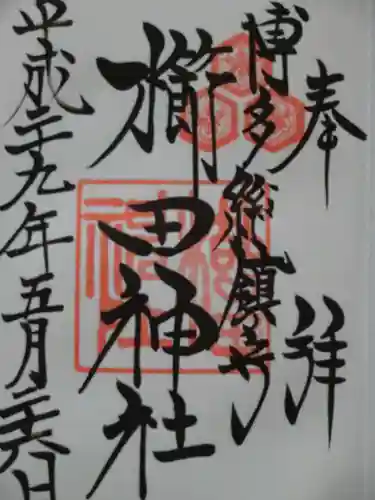 奉拝
博多総鎮守
櫛田神社
平成二十九年五月二十六日